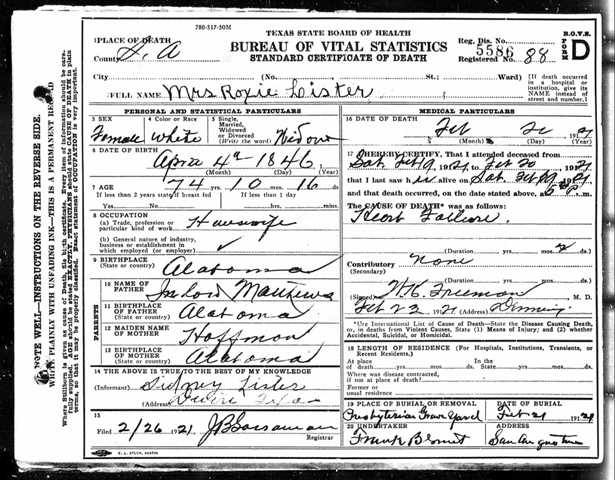 780-517-50M
TEXAS STATE BOARD OF HEALTH
BUREAU OF VITAL STATISTICS
STANDARD CERTIFICATE OF DEATH
R.O.V.S.
FORM D
Reg. Dis. No. 5586
Registered No. 88
PLACE OF DEATH
County S. A
City (No. St.: Ward)
[If death occurred in a hospital or institution, give its NAME instead of street and number.]
FULL NAME Mrs Roxie Lister
PERSONAL AND STATISTICAL PARTICULARS
3 SEX Female
4 Color or Race White
5 Single, Married, Widowed or Divorced (Write the word) Widow
6 DATE OF BIRTH
4th 1846
(Month) (Day) (Year)
7 AGE 74 10 16 ds.
If less than 2 years state if breast fed
If less than 1 day
Yes No hrs. min.
8 OCCUPATION
(a) Trade, profession or particular kind of work Housewife
(b) General nature of industry, business or establishment in which employed (or employer)
9 BIRTHPLACE
(State or country) Alabama
PARENTS
10 NAME OF FATHER Matthews
11 BIRTHPLACE OF FATHER (State or country) Alabama
12 MAIDEN NAME OF MOTHER Hoffman
13 BIRTHPLACE OF MOTHER (State or country) Alabama
14 THE ABOVE IS TRUE TO THE BEST OF MY KNOWLEDGE
(Informant) Sidney Lister
(Address)
15
Filed 2/26 1921
Registrar
MEDICAL PARTICULARS
16 DATE OF DEATH
Feb 20 1921
(Month) (Day) (Year)
17 I HEREBY CERTIFY, That I attended deceased from
Sat Feb 19, 1921, to Feb 20 1921
that I last saw h alive on Sat Feb 19, 1921
and that death occurred, on the date stated above, at
The CAUSE OF DEATH* was as follows:
Heart Failure
(Duration yrs. mos. ds.
Contributory None
(Secondary)
(Duration) yrs. mos. ds.
(Signed) Freeman M. D.
Feb 22 1921 (Address) Denning
*Use International List of Causes of Death—State the Disease Causing Death, or, in deaths from Violent Causes, State (1) Means of Injury; and (2) whether Accidental, Suicidal, or Homicidal.
18 LENGTH OF RESIDENCE (For Hospitals, Institutions, Transients, or Recent Residents.)
At place of death yrs. mos. ds. In the State yrs. mos. ds.
Where was disease contracted, if not at place of death?
Former or usual residence
19 PLACE OF BURIAL OR REMOVAL Presbyterian Grave Yard
DATE OF BURIAL Feb 21 1921
20 UNDERTAKER Frank Blount
ADDRESS San Augustine
NOTE WELL—INSTRUCTIONS ON THE REVERSE SIDE.
WRITE PLAINLY WITH UNFADING INK—THIS IS A PERMANENT RECORD